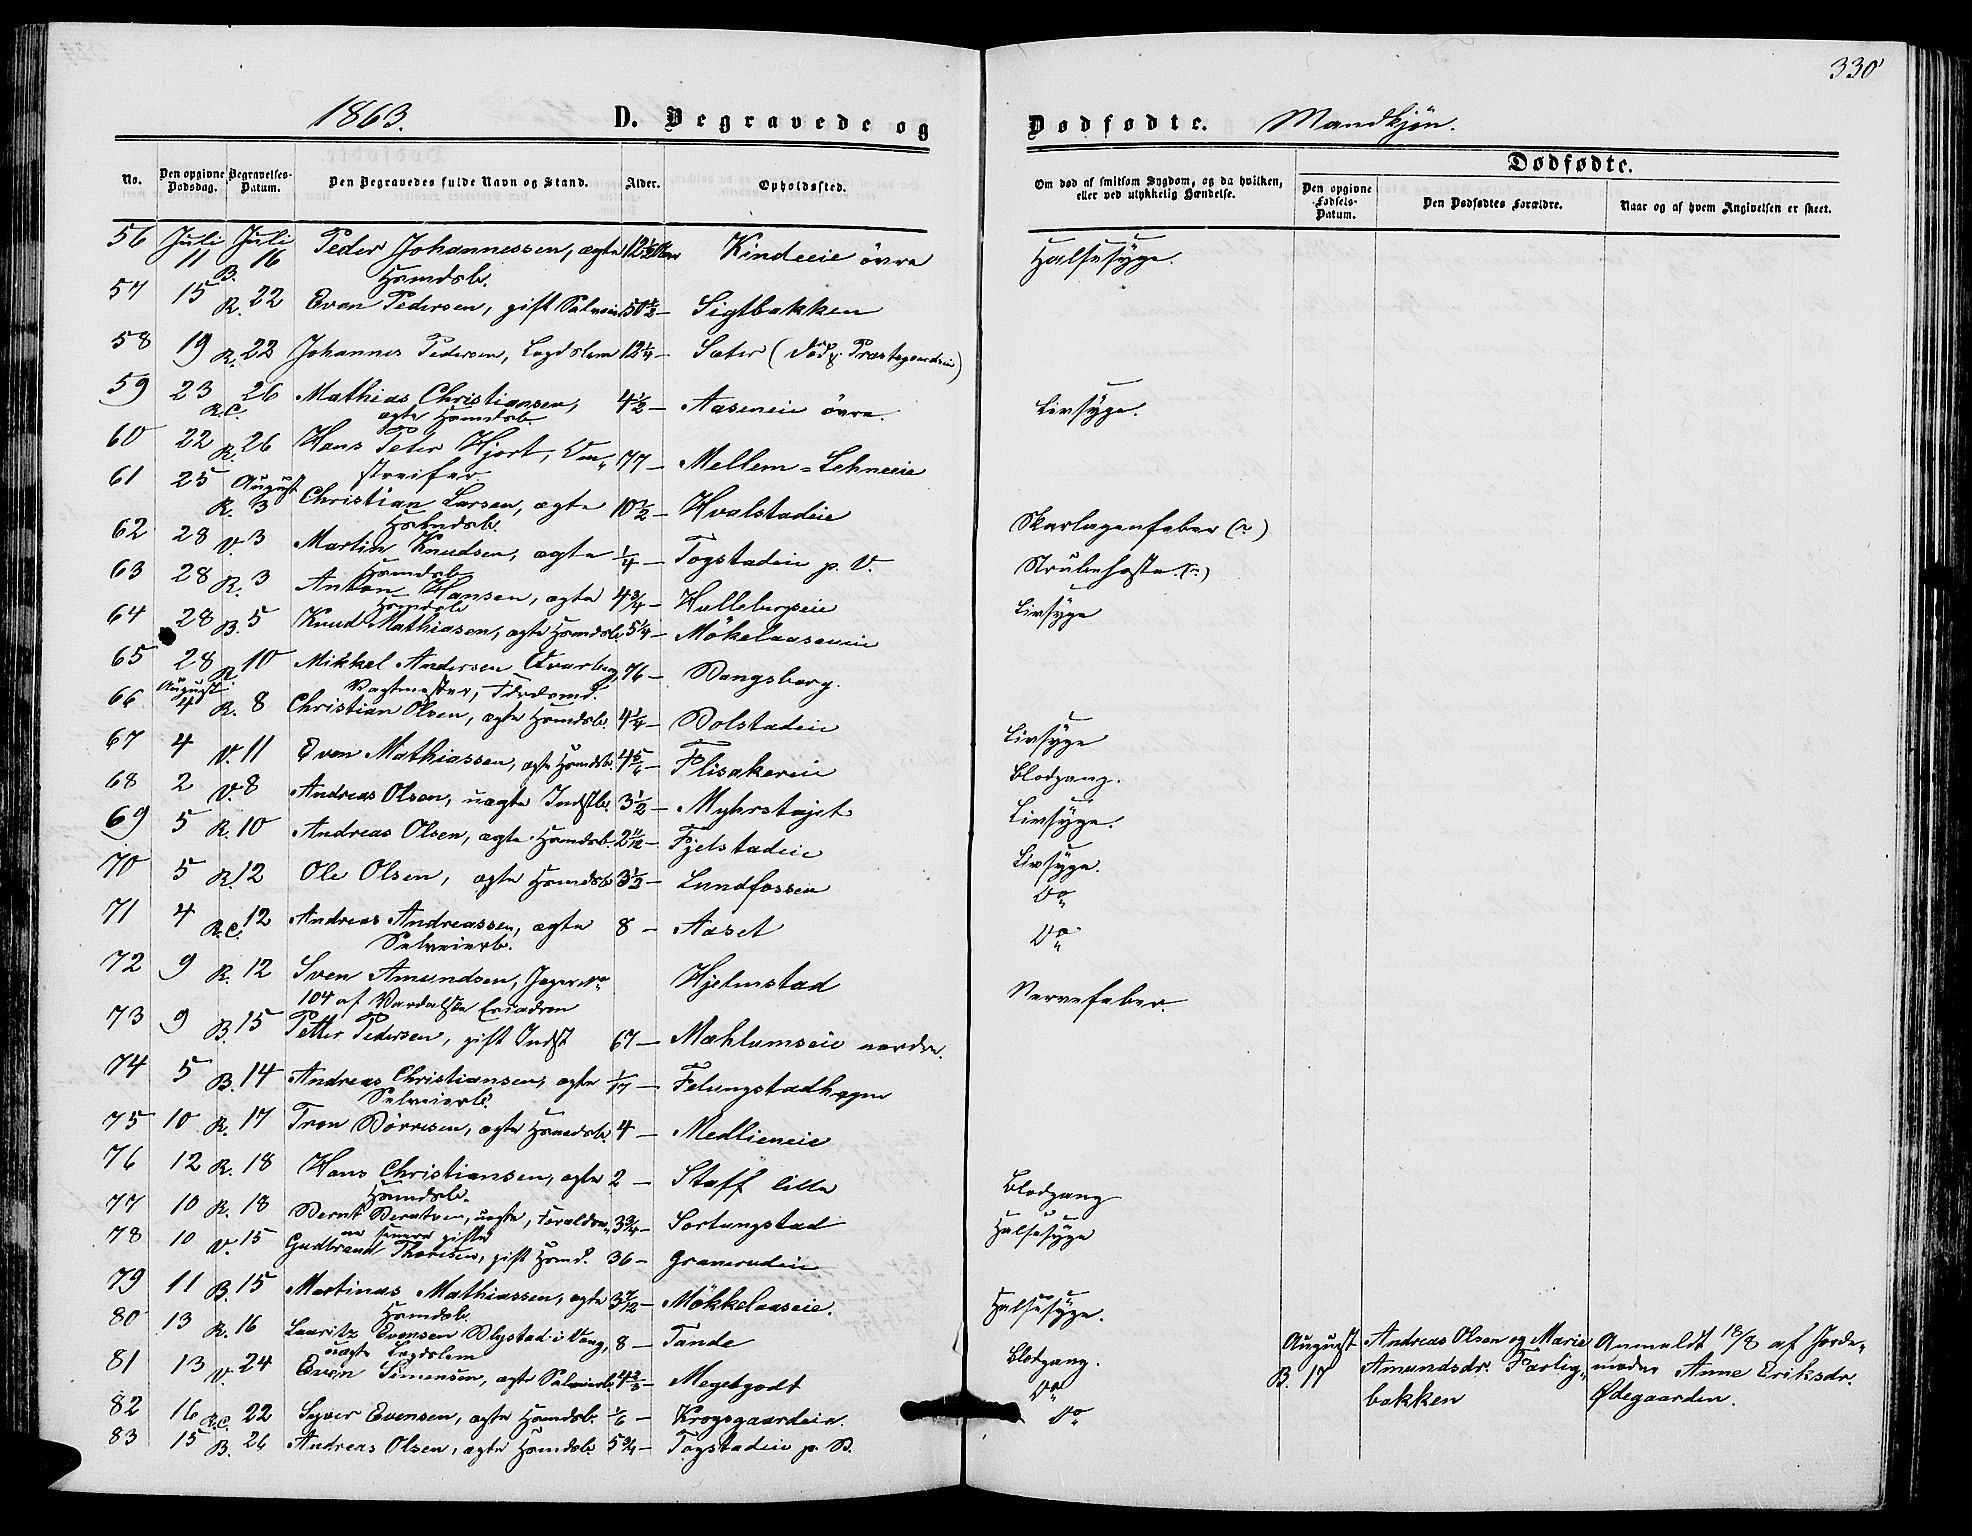 330
1863. D. Begravede og Dødfødte. Mandkjøn.
No. Den opgivne Dødsdag. Begravelses-Datum. Den Begravedes fulde Navn og Stand. Alder. Opholdssted.
Om død af smitsom Sygdom, og da hvilken, eller ved ulykkelig Hændelse.
Dødfødte.
Den opgivne Fødsels-Datum. Den Dødfødtes Forældre. Naar og af hvem Angivelsen er skeet.
56 Juli 11 Juli B. 16 Peder Johannessen, ægte 12½ Kindeeie övre Halsesyge.
Hsmdsb.
57 15 R. 22 Even Pedersen, gift Selveier 50½ — Sigtbakken
58 19 R. 22 Johannes Pedersen, Lægdslem 12¼ — Sæter (död p. Præstegaardseie)
59 23 R.C. 26 Mathias Christiansen, 4½ — Aaseneie övre. Livsyge.
ægte Hsmdsb.
60 22 R. 26 Hans Peter Hjort, Om„ 77 — Mellem=Lehneeie
streifer
61 25 August R. 3 Christian Larsen, ægte 10½ — Hvalstadeie Skarlagenfeber (n)
Hsmdsb.
62 28 V. 3 Martin Knudsen, ægte ¼ — Togstadeie p. V. Strubehoste. (n)
Hsmdsb.
63 28 R. 3 Anton Hansen, ægte 4¾ — Hulleburgseie Livsyge
Hsmdsb
64 28 B. 5 Knud Mathiasen, ægte Hsmdsb. 5¼ — Mökelaaseneie
65 28 R. 10 Mikkel Andersen Qvarberg, 76 — Bangsberg.
Vagtmester, Föderaad.
66 August 4 R. 8 Christian Olsen, ægte Hsmdsb. 4¼ — Dolstadeie Livsyge
67 4 V. 11 Even Mathiassen, ægte Hsmdsb. 4⅚ — Flisakereie Blodgang.
68 2 V. 8 Andreas Olsen, uægte Indstb. 3½ — Myhrstøjet Livsyge.
69 5 R. 10 Andreas Olsen, ægte Hsmdsb. 2 11/12 — Fjelstadeie Livsyge.
70 5 R. 12 Ole Olsen, ægte Hsmdsb 3½ — Lundfossen Do
71 4 R.C. 12 Andreas Andreassen, ægte 8 — Aaset Do
Selveierb.
72 9 R. 12 Sven Amundsen, Jæger No Hjelmstad Nervefeber.
104 af Vardalske Escadron
73 9 B. 15 Petter Pedersen, gift Indst 67 — Mæhlumseie nordre.
74 5 B. 14 Andreas Christiansen, ægte 1/17 — Felungstadhagen
Selveierb.
75 10 R. 17 Tron Börresen, ægte Hsmdsb. 4 — Medlieneie
76 12 R. 18 Hans Christiansen, ægte 2 — Staff lille Blodgang
Hsmdsb.
77 10 R. 18 Bernt Berntsen, uægte, Forældre„ 3¾ — Sortungstad Halsesyge
ne senere gifte
78 10 V. 15 Gudbrand Thoresen, gift Hsmd. 36 — Graverudeie
79 11 B. 15 Martinus Mathiassen, ægte 3 7/12 — Mökkelaaseie. Halsesyge.
Hsmdsb.
80 13 R. 16 Lauritz Evensen Blystad i Vang, 8 — Tande Blodgang.
uægte Lægdslem
81 13 V. 24 Even Simensen, ægte Selveierb. 4⅔ — Megetgodt Do
82 16 R.C. 22 Syver Evensen, ægte Hsmdsb. ⅙ — Krogsgaardeie. Do
83 15 B. 26 Andreas Olsen, ægte Hsmdsb. 5¾ — Togstadeie p. B.
August B. 17 Andreas Olsen og Marie Amundsdr. Færlig„bakken
Anmeldt 18/8 af Jorde„moder Anne Eriksdr. Ødegaarden.